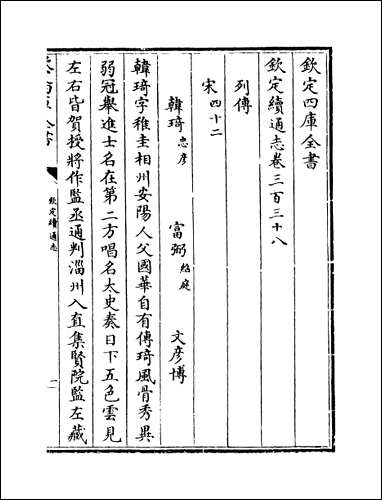 欽定四庫全書
欽定續通志卷三百三十八
列傳
宋四十二
韓琦忠彥 富弼紹庭 文彥博
韓琦字稚圭相州安陽人父國華自有傳琦風骨秀異
弱冠舉進士名在第二方唱名太史奏日下五色雲見
左右皆賀授將作監丞通判淄州入直集賢院監左藏
欽定續通志
一